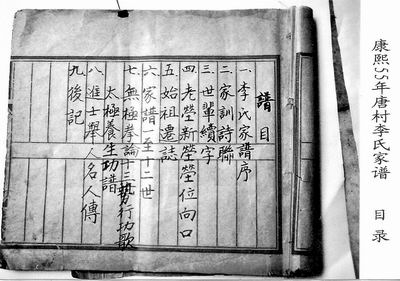 譜目
一.李氏家譜序
二.家訓詩聯
三.世輩續字
四.老塋新塋塋位向口
五.始祖遷誌
六.家譜一至十二世
七.無極拳論十三勢行功歌
太極養生功譜
八.進士舉人名人傳
九.後記
康熙55年唐村李氏家谱 目录